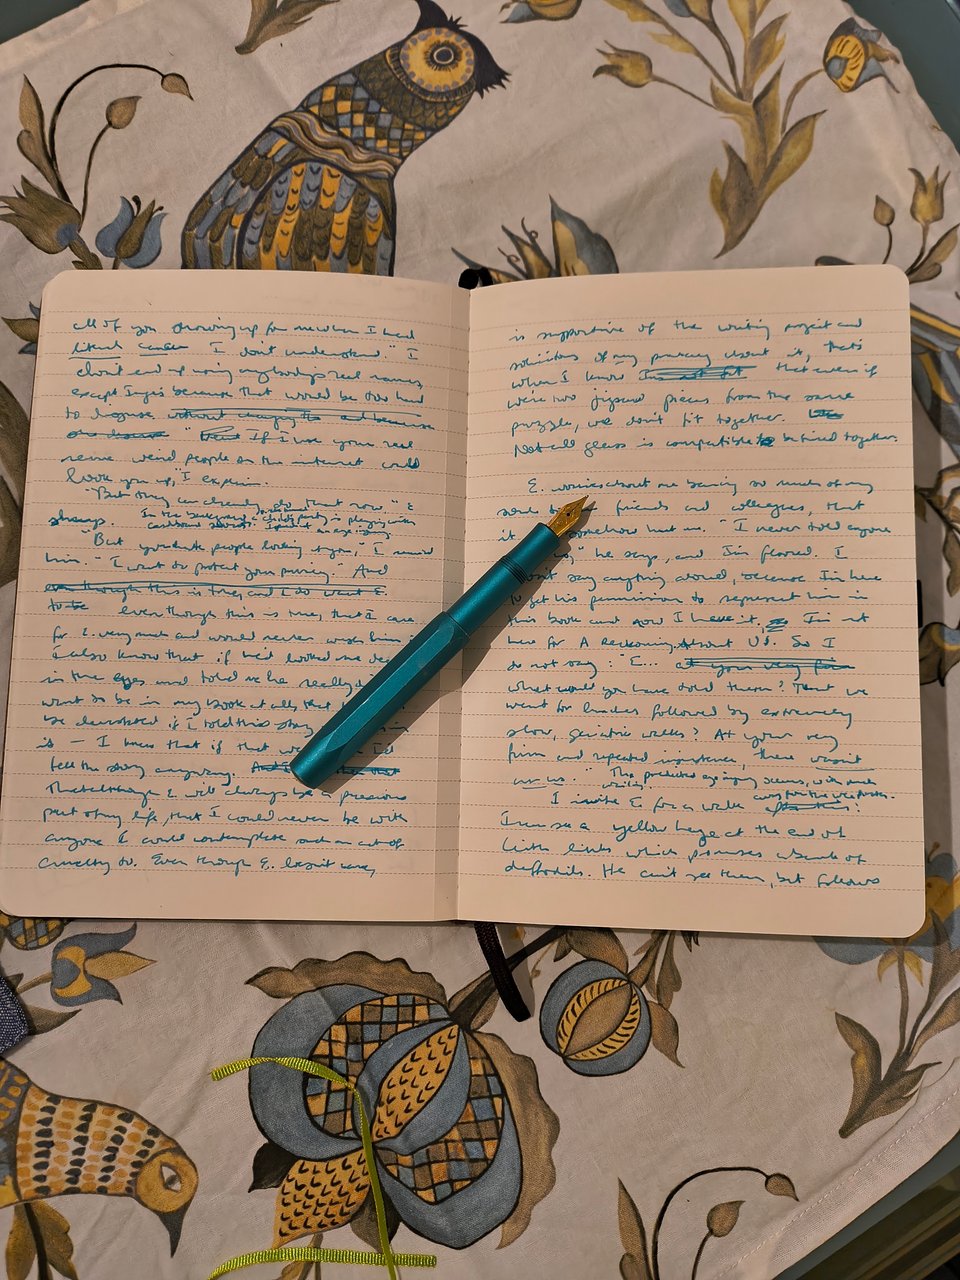 all of you showing up for me when I had
literal cancer I don't understand." I
don't end up using anybody's real names
except Inge's because that would be too hard
to disguise without changing the and because
"If I use your real
name weird people on the internet could
look you up," I explain.
"But they can already do that now." E
shrugs.
"But you hate people looking at you," I remind
him. "I want to protect your privacy." And
even though this is true, and I do want E.
to be even though this is true, that I care
for E. very much and would never wish him
I also know that if he'd looked me
in the eyes and told me he really
want to be in my book at all, that
be devastated if I told this story
it — I knew that if that we I'd
tell the story anyway.
That although E will always be a precious
part of my life, that I could never be with
anyone I could contemplate such an act of
cruelty to. Even though E.
is supportive of the writing project and
solicitous of my privacy about it, that's
when I know In not fit that even if
we're two jigsaw pieces from the same
puzzle, we don't fit together.
Not all glass is compatible to be fused together.
E. worries about me being so much of my
friends and colleagues, that
it somehow hurt me. "I never told anyone
" he says, and I'm floored. I
don't say anything aloud, because I'm here
to get his permission to represent him in
this book and now I have it, I'm not
here for A Reckoning About Us. So I
do not say: "E... at your very firm
what would you have told them? That we
went for lunches followed by extremely
slow, geriatric walks? At your very
firm and repeated insistence, there wasn't
an us."
I invite E for a walk
I can see a yellow haze at the end of
which promises a bank of
daffodils. He can't see them, but follows